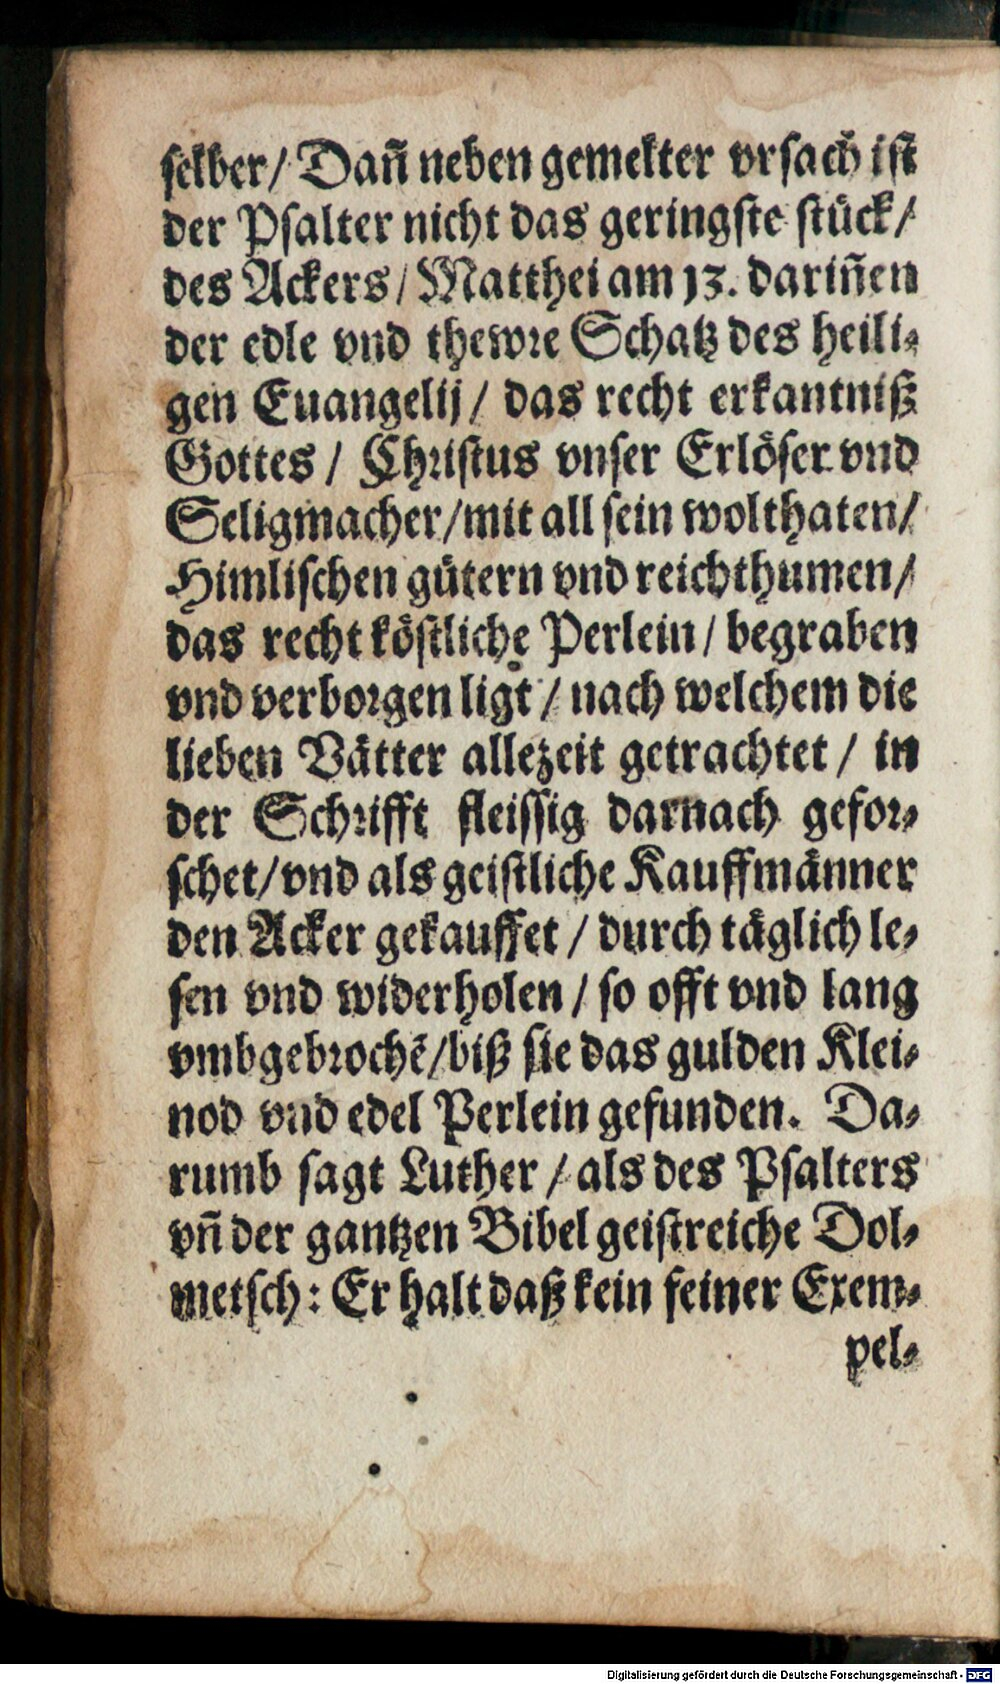 selber/ Dañ neben gemelter vrsach ist
der Psalter nicht das geringste stück/
des Ackers/ Matthei am 13. dariñen
der edle vnd thewre Schatz des heili-
gen Euangelij/ das recht erkantniß
Gottes/ Christus vnser Erlöser vnd
Seligmacher/mit all sein wolthaten/
Himlischen gütern vnd reichthumen/
das recht köstliche Perlein/ begraben
vnd verborgen ligt/ nach welchem die
lieben Vätter allezeit getrachtet/ in
der Schrifft fleissig darnach gefor-
schet/vnd als geistliche Kauffmänner
den Acker gekauffet/ durch täglich le-
sen vnd widerholen/ so offt vnd lang
vmbgebrochē/biß sie das gulden Klei-
nod vnd edel Perlein gefunden. Da-
rumb sagt Luther/ als des Psalters
vñ der gantzen Bibel geistreiche Dol-
metsch: Er halt daß kein feiner Exem-
pel-
Digitalisierung gefördert durch die Deutsche Forschungsgemeinschaft - DFG